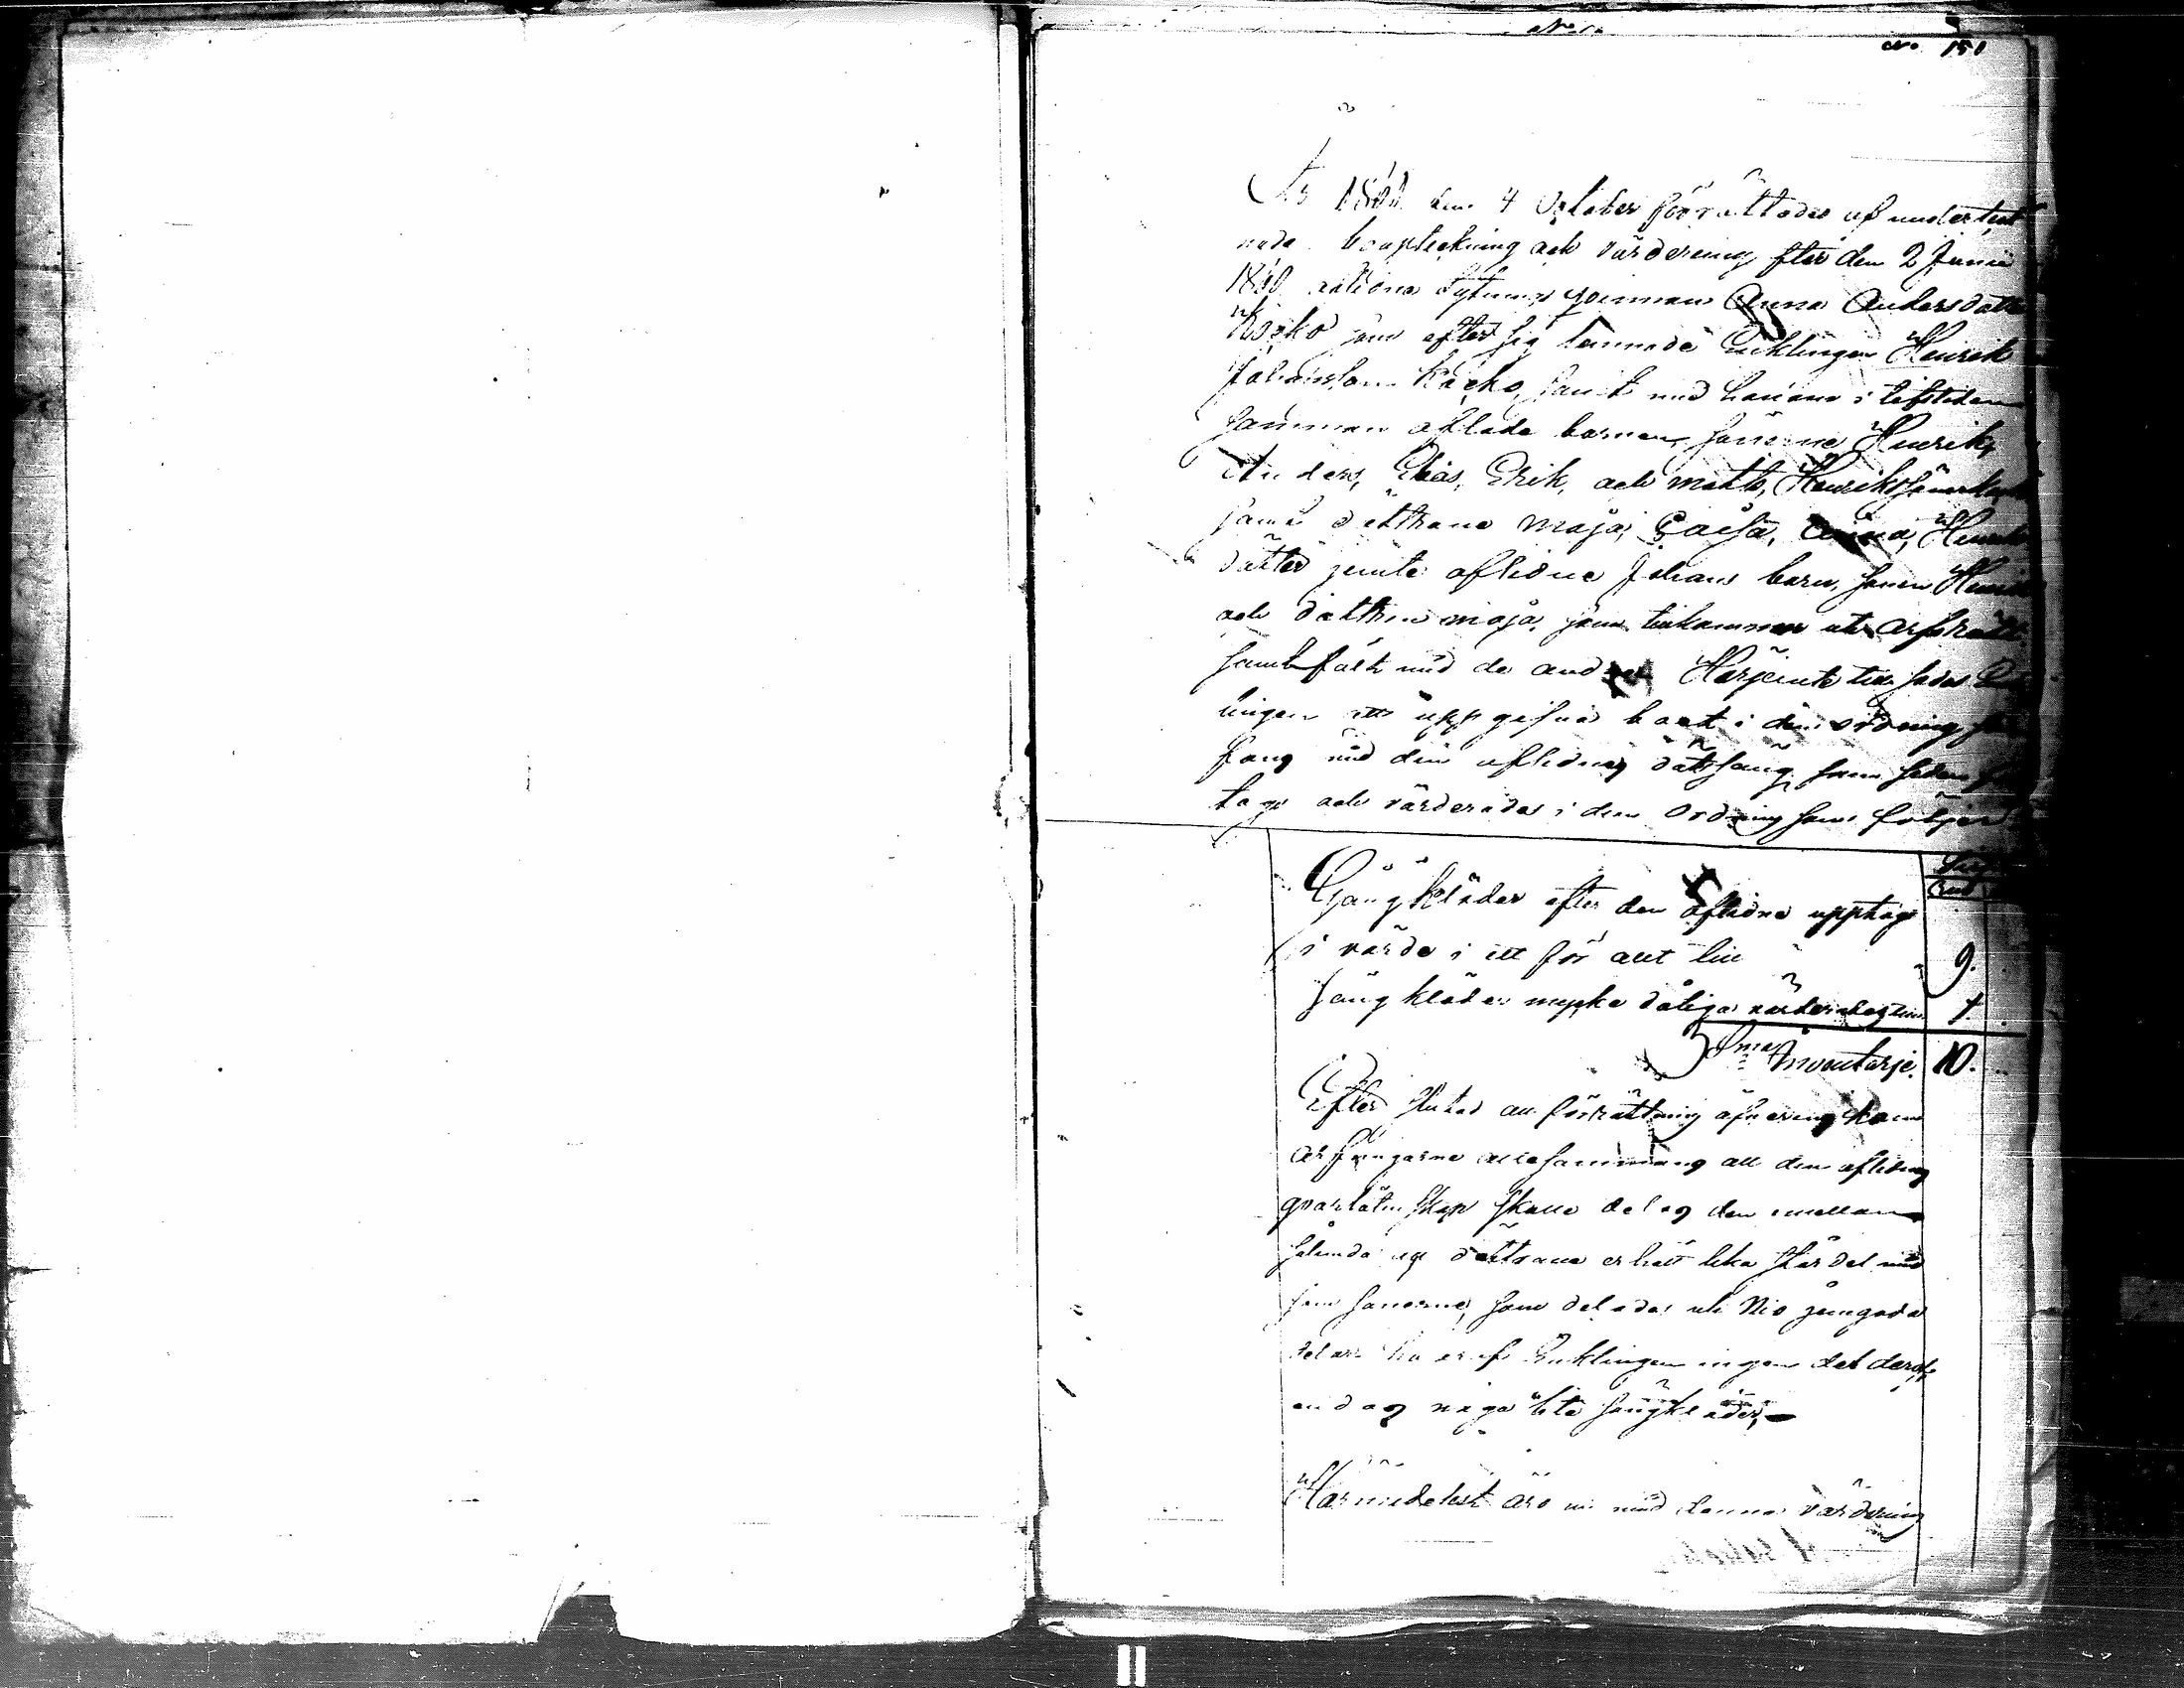 No 151
År 1801 den 4 October förrättades af underteck
nade bouptekning och värdering efter den 2 Junii
1800 aflidna Sytnings qvinnan Anna Andersdotter
Kåcko som efter sig lemnade Encklingen Henrik
Johansson Kåcko, samt med honom i lifstiden
samman aflade barnen sönerne Henrik,
Anders, Elias, Erik, och Matts, Henrikssöner
samt döttrane Maja, Caisa, Anna, Henriks
dötter jemte aflidne Johans barn, sonen Henrik
och dottren Maja, som tilkommer ut arfsrätt
samfält med de andra Härjemte
lingen att uppgifva boet i den ordning
fans vid den aflidnes dödsfång som sedan
togs och värderades i den ordning som följer
Gångkläder efter den aflidna upptogs
i värde i ett för alt till 9.
Sängkläder mycke dåliga värderades till 1.
Sma Inventarje. 10.
Efter slutad förrättning öfverenskom
arfvingarne allesammans att den aflidnes
qvarlåtenskap skulle delas dem emellan
sålunda att döttrane erhålt lika stor del med
som sönerne, som delades uti Nio jemgoda
delar Encklingen ingen del deraf
endast några lite sängkläder,
Härmedelst äro vi med denna värdering